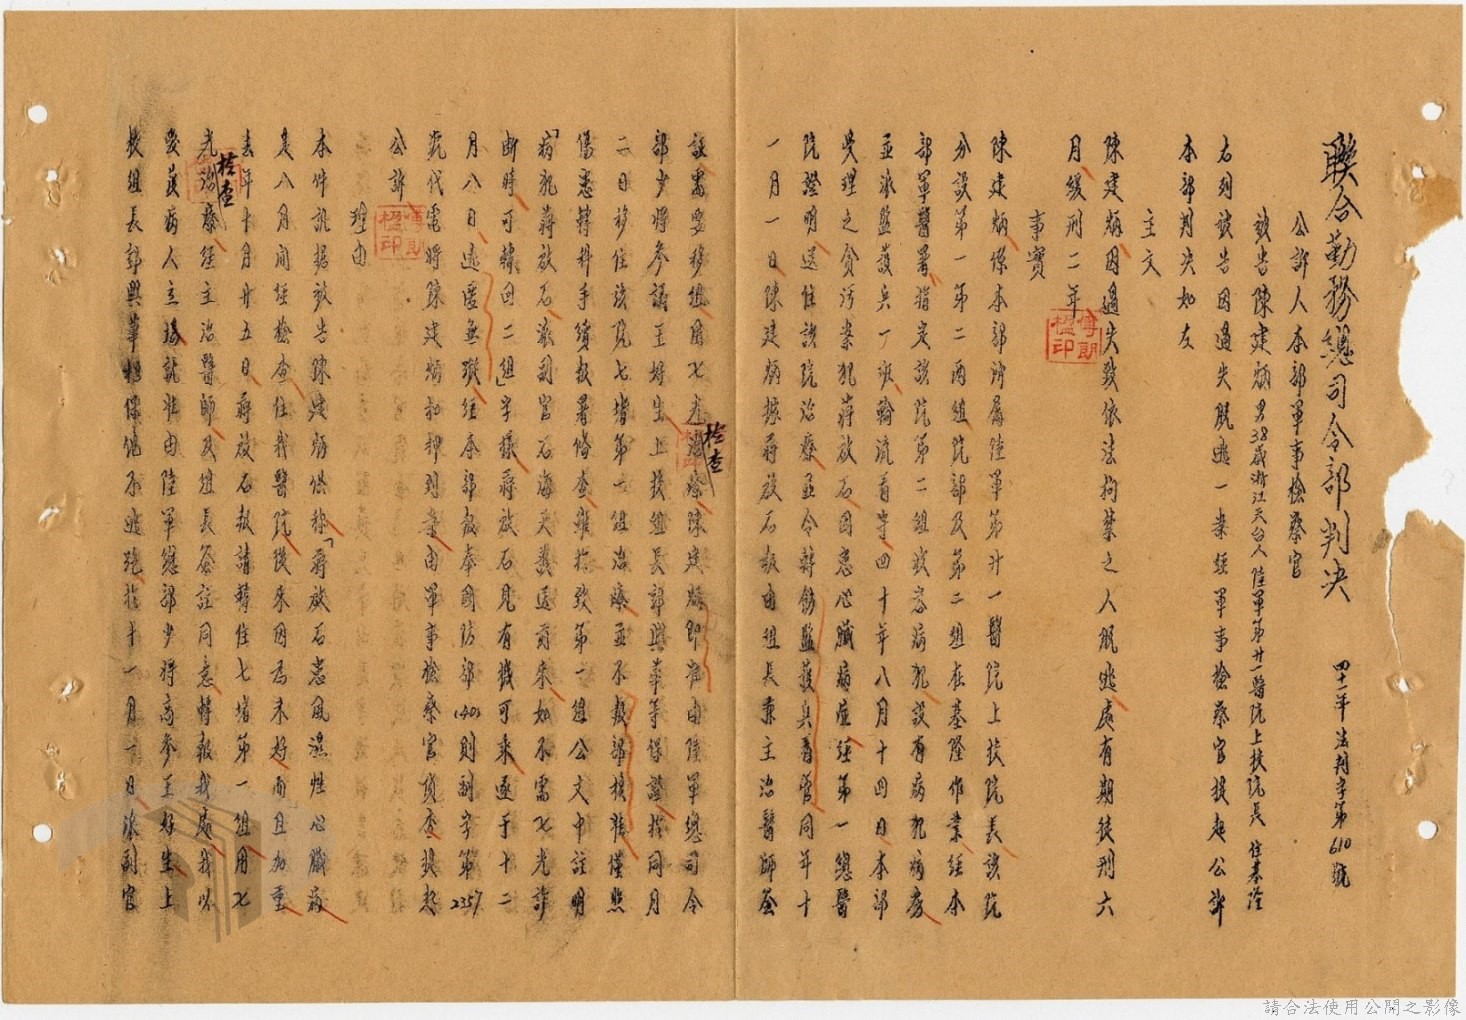 聯合勤務總司令部判決　四十一年法判字第610號
公訴人本部軍事檢察官
被告陳建炳男38歲浙江天台人陸軍第廿一醫院上校院長住基隆
右列被告因過失脫逃一案經軍事檢察官提起公訴
本部判決如左
主文
陳建炳因過失致依法拘禁之人脫逃處有期徒刑六
月緩刑二年
事實
陳建炳係本部所屬陸軍第廿一醫院上校院長該院
分設第一第二兩組院部及第二組在基隆作業經本
部軍醫署指定該院第二組收容病犯設有病犯病房
並派監護兵一班輪流看守四十年八月十四日本部
受理之貪污案犯蔣放石因患心臟病症經第一總醫
院證明送住該院治療並令轉飭監護兵看管同年十
一月一日陳建炳據蔣放石報由組長兼主治醫師簽
註需要移組用七光檢查陳建炳即准由陸軍總司令
部少將參議王好生上校組長郭興華等保證於同月
二日移住該院七堵第一組治療並不報部核准僅照
傷患轉科手續報署備查雖於致第一組公文中註明
「病犯蔣放石派副官石海天護送前來如不需七光診
斷時可轉回二組」字樣蔣放石見有機可乘遂于十二
月八日逃匿無蹤經本部報奉國防部(40)則副字第2257
號代電將陳建炳扣押到案由軍事檢察官偵查提起
公訴
理由
本件訊據被告陳建炳供稱「蔣放石患風濕性心臟病
是八月間經檢查住我醫院後來因為未好而且加重
去年十月廿五日蔣放石報請轉住七堵第一組用七
光檢查經主治醫師及組長簽註同意轉報我處我以
愛護病人立場就准由陸軍總部少將高參王好生上
校組長郭興華担保他不逃跑於十一月一日派副官
傅朗楹印
傅朗楹印
請合法使用公開之影像